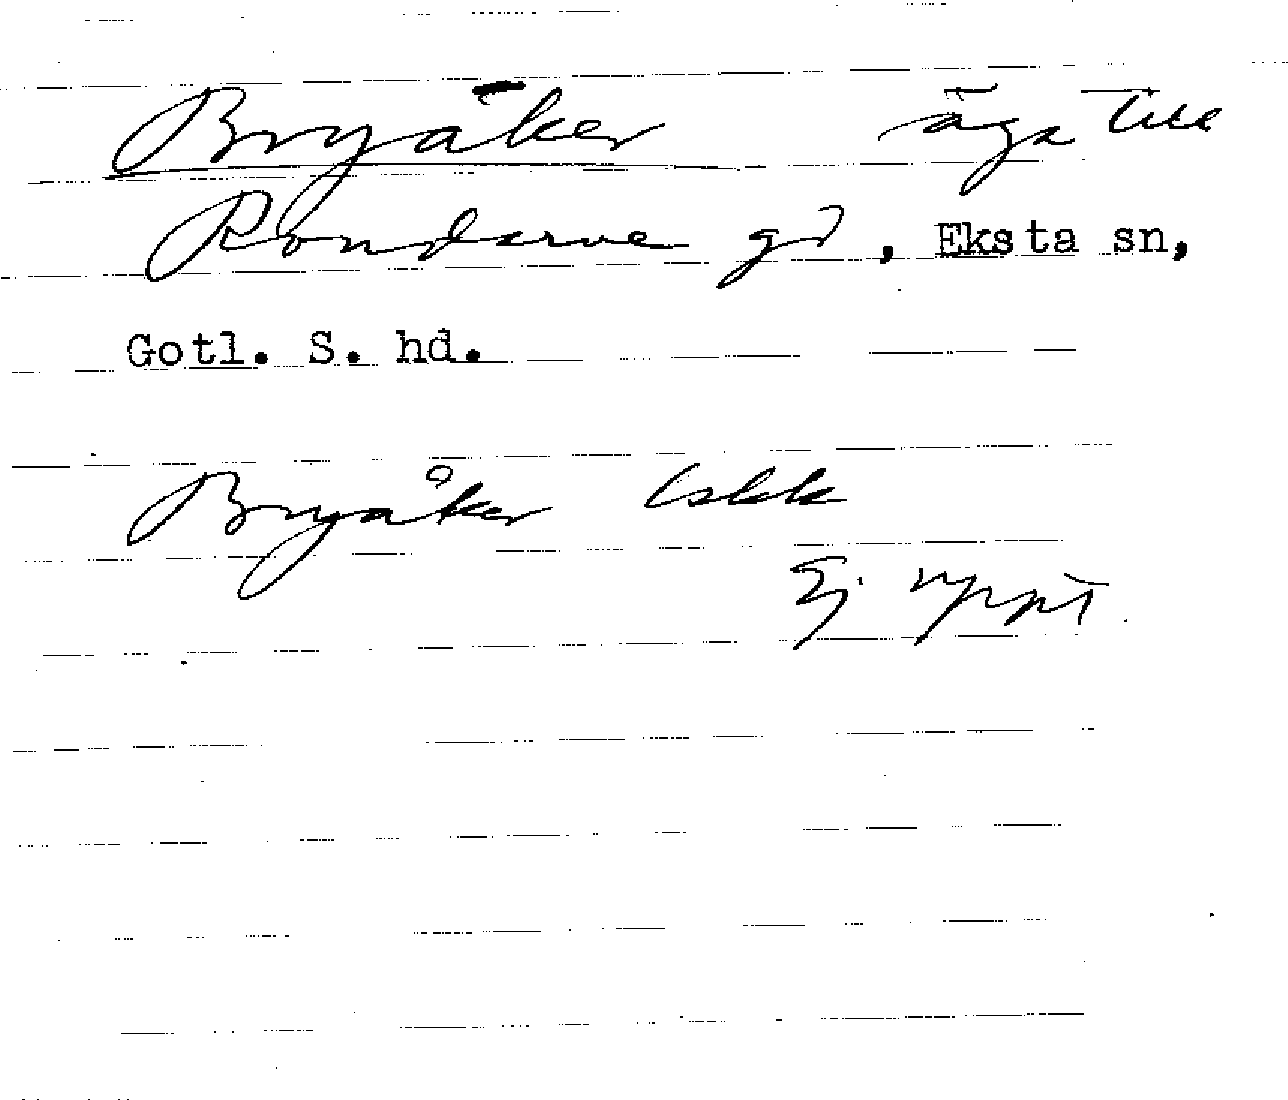 Bryåker äga till
Rondarve gd, Eksta sn,
Gotl. S. hd.
Bryåker Lskk
Ej uppt.